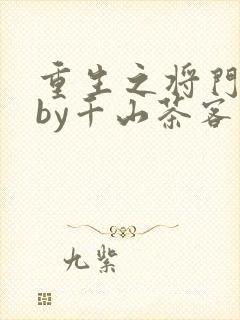 重生之将門
by千山茶客
九紫